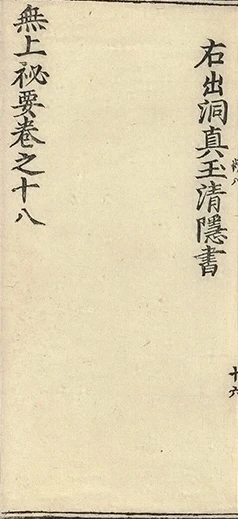 右出洞真玉清隱書
無上祕要卷之十八
十六